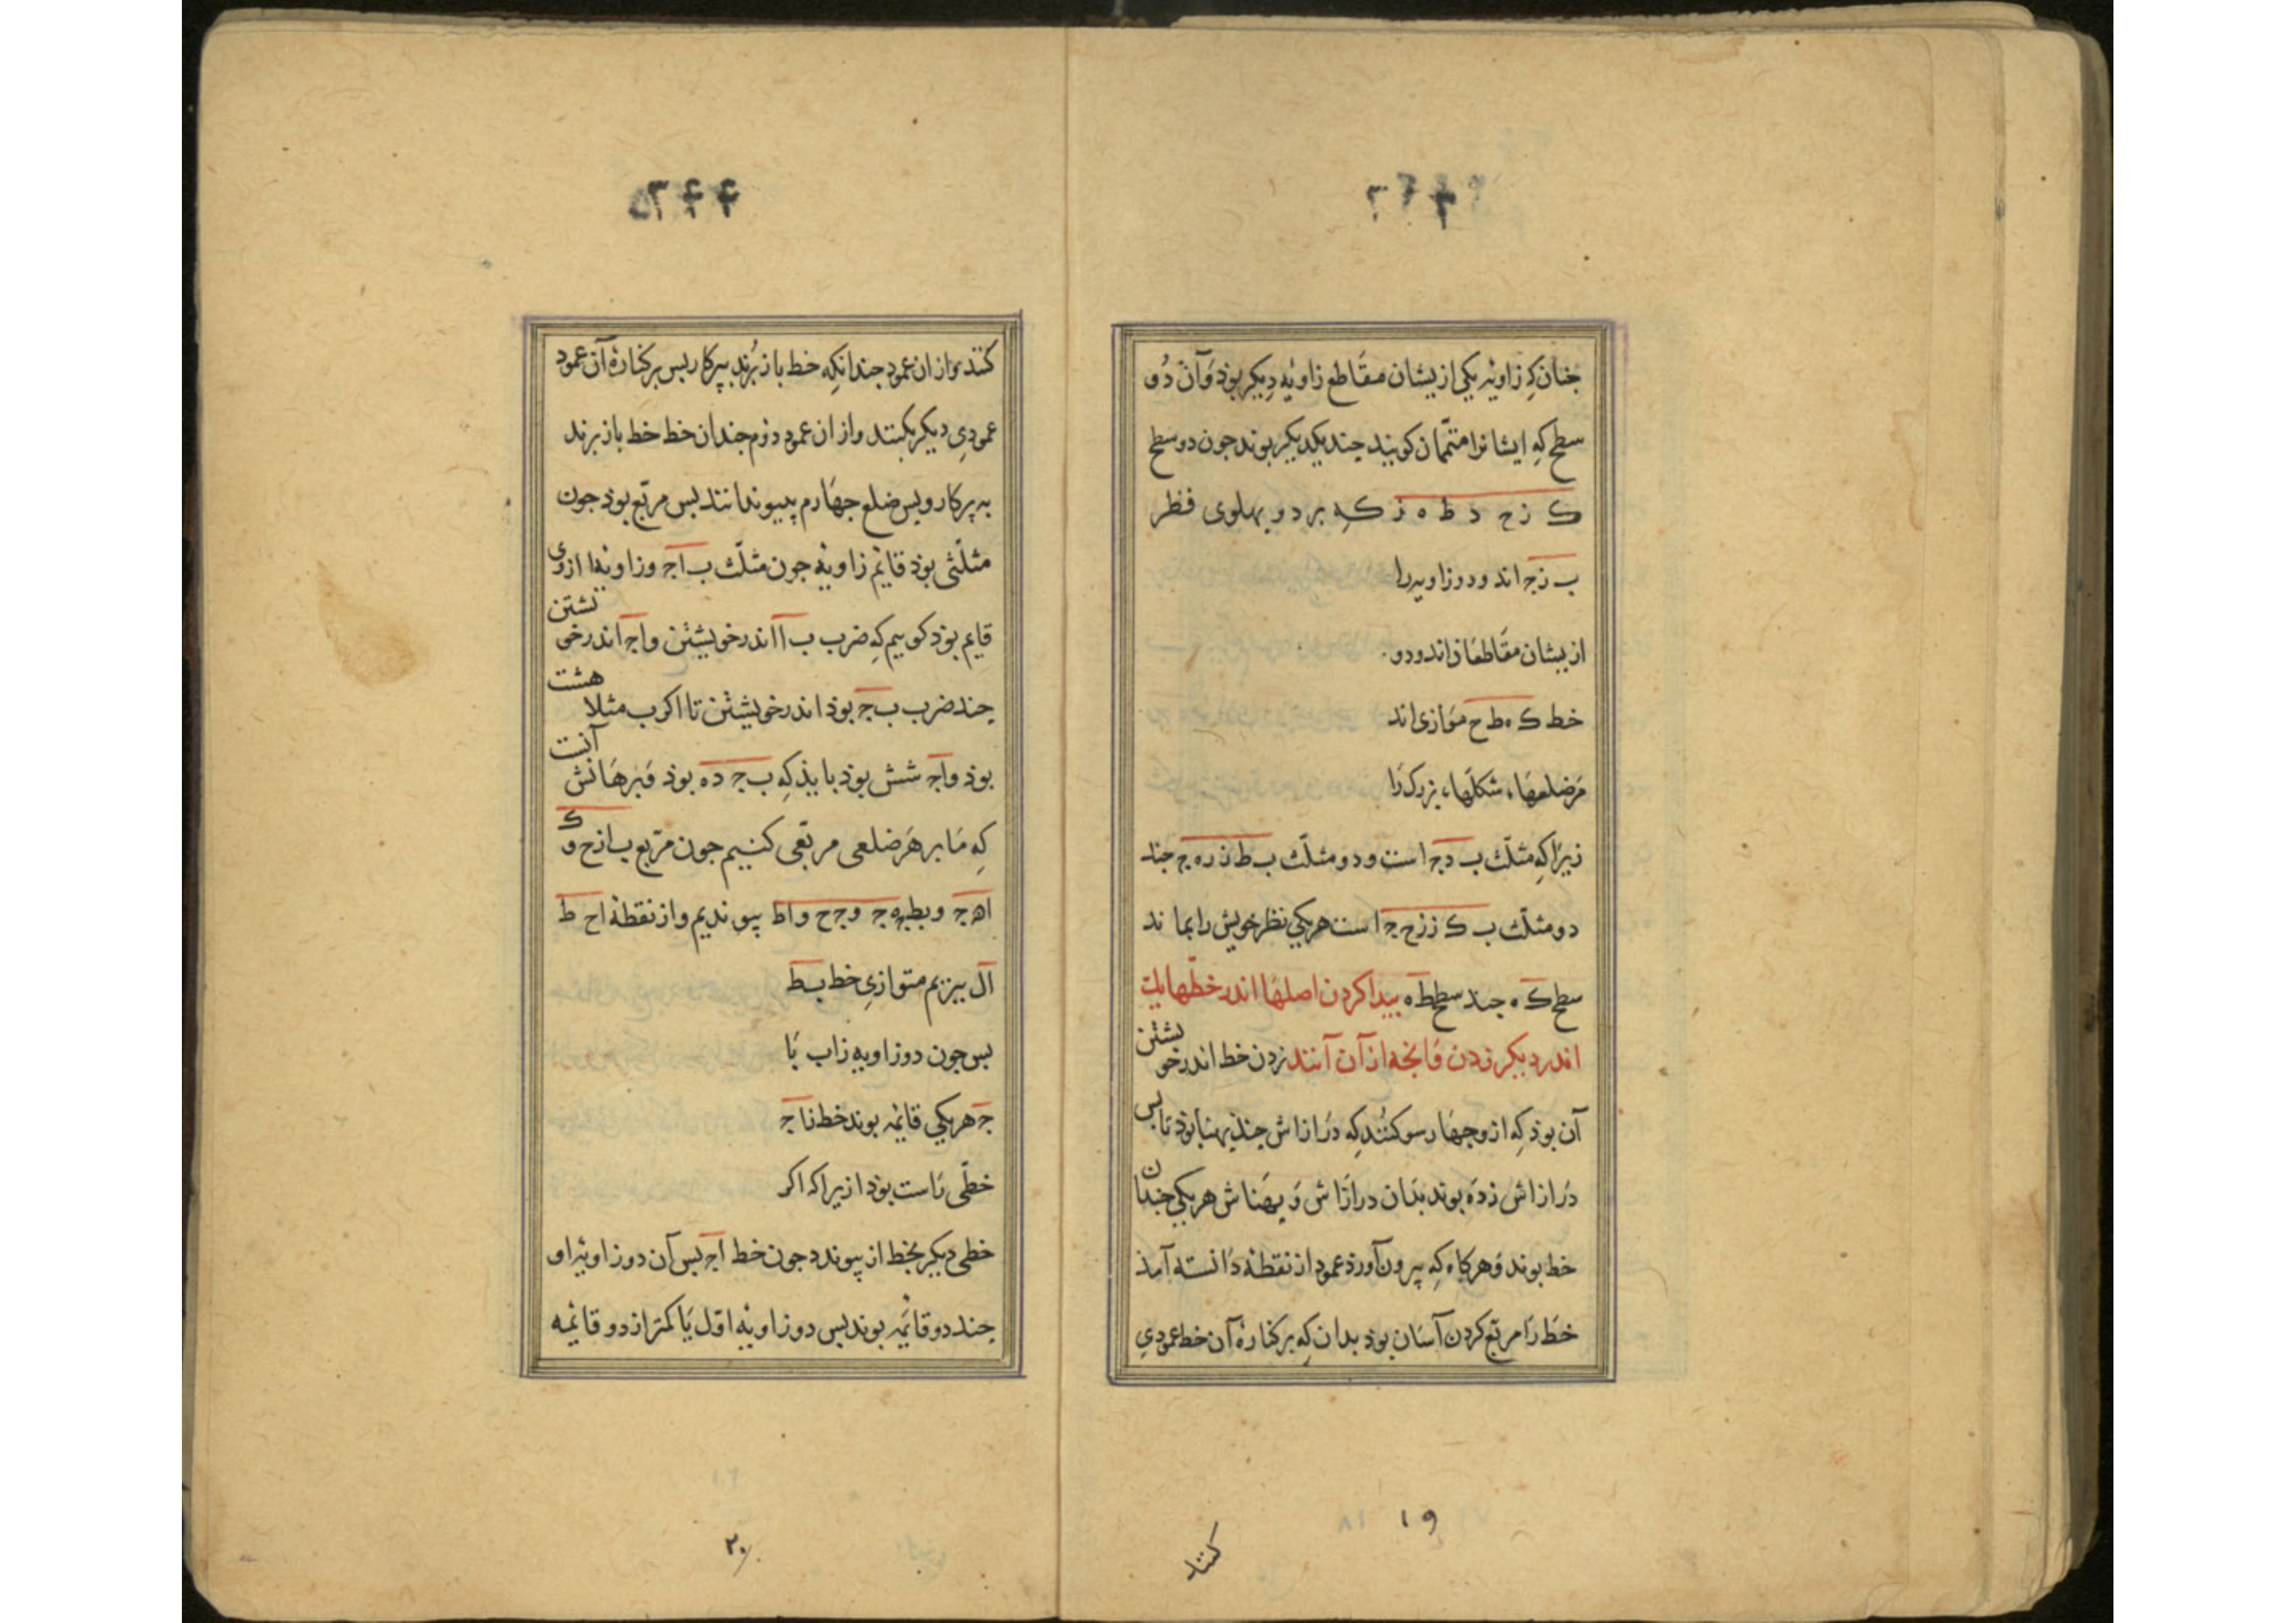 جنان کِه زاویۀ یکی از یشان مقَاطع زاویۀ دِیکر بوذ وَآن دُو
سطح کِه ایشانرا متمّمان کویند چند یکدیکر بوند جون دو سطح
ک ز ح د ط ه ز کِه بر دو پهلوی قطر
ب ز جـ اند و دو زاویه را
از یشان مقَاطعَانند و دو
خط ک ه ط ح موَازی اند
مَر ضلعهَاء شکلهَاء بزرک رَا
زیرَا کِه مثلّث ب د جـ است و دو مثلّث ب ط ز ر ه جـ چند
دو مثلّث ب ک ز ز ح جـ است هر یکی نظر خویش را بماند
سطح ک ه چند سطح ط ه پیدا کردن اصلهَا اندر خطّها یک
اندر دیکر زدن وَانجه از آن آنند زدن خط اندر خو یشتن
آن بوذ کِه ازو جهَار سو کنند کِه دَرازاش چند پهنا بوذ تا بس
دَرازاش زدَه بوند بدَان درازَاش وَ پهَناش هر یکی جندان
خط بوند وَهر کاه کِه بیرون آوردَ عمود از نقطهٔ دَانسته آمذ
خط رَا مربّع کردن آسَان بوذ بدان کِه بر کنارهٔ آن خط عمودی
۱۹
کنند
کنند واز ان عمود جندانکِه خط باز بُرند بپرکار بس بر کنارهٔ آن عمود
عمودِی دیکر بکنند واز ان عمود دوّم جندان خط خط باز برند
به پرکار وبس ضلع جهَارم پیوندانند بس مربّع بوذ جون
مثلّثی بوذ قائم زاویه جون مثلّث ب ا جـ وزاویۀ ا ازوی
قایم بوذ کوییم کِه ضرب ب ا اندر خویشتن وا جـ اندر خو یشتن
چند ضرب ب جـ بوذ اندر خویشتن تا اکر ب مثلا هشت
بوذ وا جـ شش بوذ بایذ کِه ب جـ ده بوذ وَبرهَانش آنست
کِه مَا بر هَر ضلعی مربّعی کنیم جون مرّبع ب ا ز ح و ک
ا ه جـ و ب ط ه جـ و جـ ح وا ط پیوندیم واز نقطهٔ ا ح ط
ا ل ببریم متوازیِ خط ب ط
بس جون دو زاویه ز ا ب بَا
جـ هر یکی قائمه بوند خط ز ا جـ
خطّی رَاست بوذ ازیرا که اکر
خطی دیکر بخط از پیوندد جون خط ا جـ بس آن دو زاویۀ او
چند دو قائمه بوند بس دو زاویۀ اوّل یَا کمتر از دو قائمه
۲۰